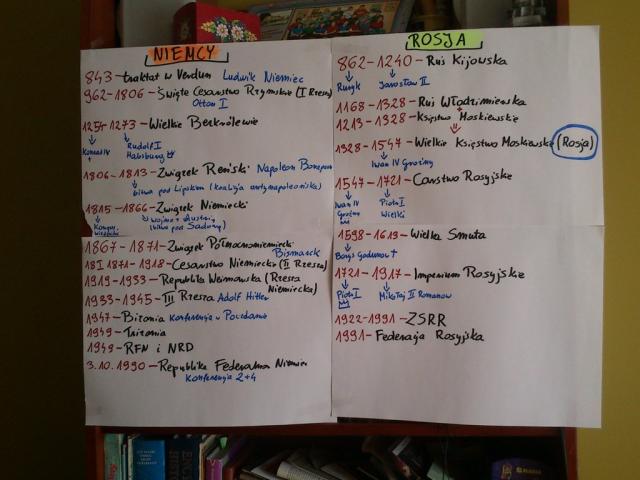 NIEMCY
843 - traktat w Verdun Ludwik Niemiec
962-1806 - Święte Cesarstwo Rzymskie (I Rzesza)
Otton I
1254-1273 - Wielkie Bezkrólewie
Konrad IV
+
Rudolf I
Habsburg
1806-1813 - Związek Reński Napoleon Bonaparte
bitwa pod Lipskiem (koalicja antynapoleońska)
1815-1866 - Związek Niemiecki
Kongres
wiedeński
wojna z Austrią
(bitwa pod Sadową)
1867-1871 - Związek Północnoniemiecki
Bismarck
18 I 1871-1918 - Cesarstwo Niemieckie (II Rzesza)
1919-1933 - Republika Weimarska (Rzesza
Niemiecka)
1933-1945 - III Rzesza Adolf Hitler
1947 - Bizonia Konferencja w Poczdamie
1949 - Trizonia
1949 - RFN i NRD
3.10.1990 - Republika Federalna Niemiec
Konferencja 2+4
ROSJA
862-1240 - Ruś Kijowska
Ruryk
Jarosław II
1168-1328 - Ruś Włodzimierska
+
1213-1328 - Księstwo Moskiewskie
1328-1547 - Wielkie Księstwo Moskiewskie (Rosja)
Iwan IV Groźny
1547-1721 - Carstwo Rosyjskie
Iwan IV
Groźny
Piotr I
Wielki
1598-1613 - Wielka Smuta
Borys Godunow +
1721-1917 - Imperium Rosyjskie
Piotr I
Mikołaj II Romanow
1922-1991 - ZSRR
1991 - Federacja Rosyjska